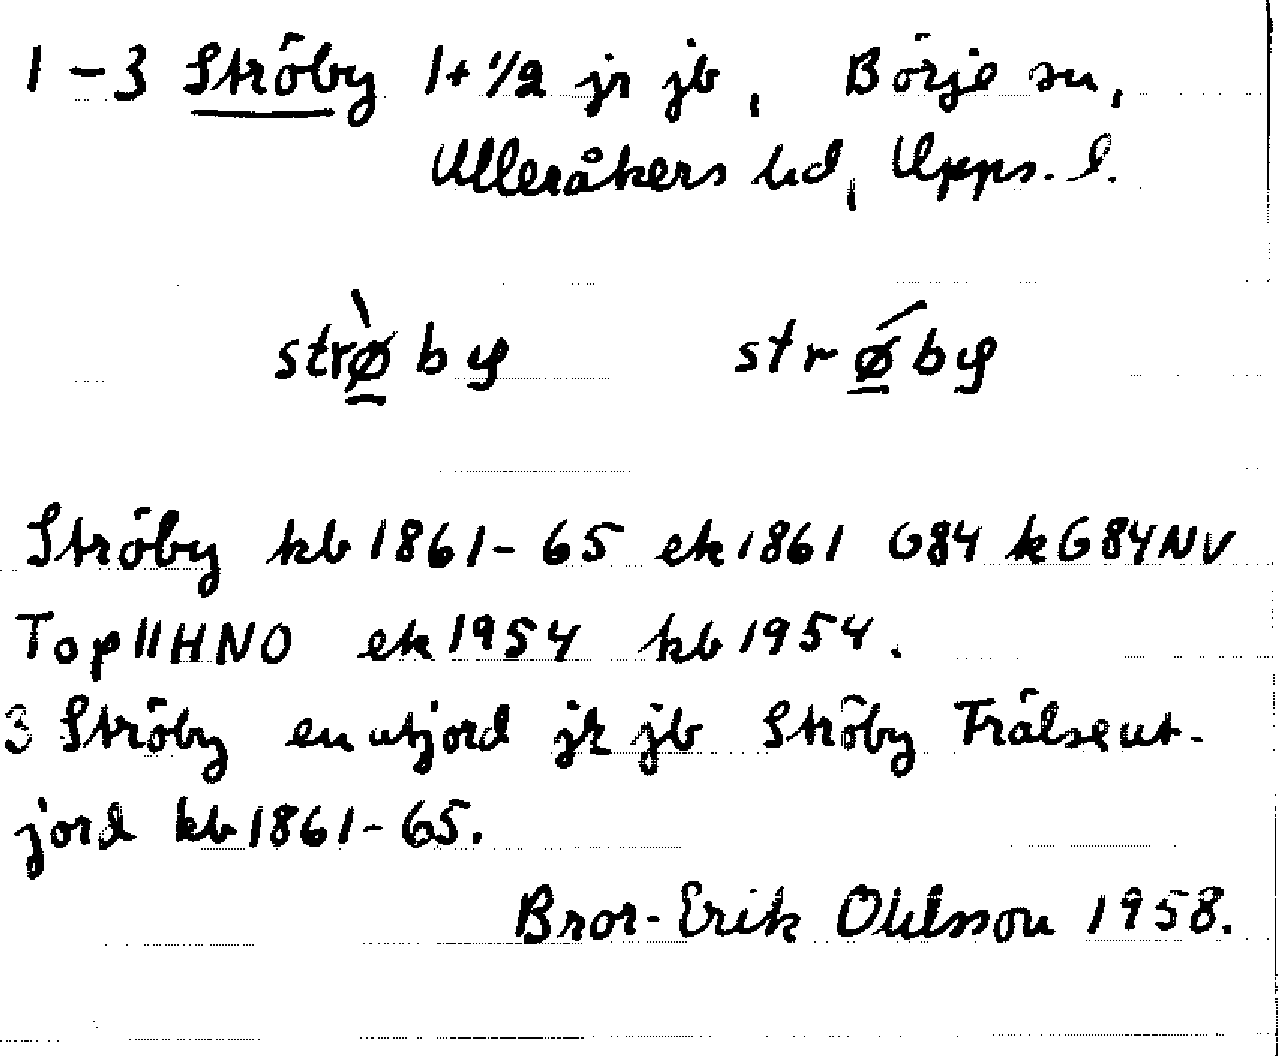 1-3 Ströby 1+1/2 jr jb, Börje sn,
Ulleråkers hd, Upps. l.
strø̀by strǿby
Ströby kb 1861-65 ek 1861 G84 kG84NV
Top 11HNO ek 1954 kb 1954.
3 Ströby en utjord jr jb Ströby Frälseut-
jord kb 1861-65.
Bror-Erik Ohlsson 1958.